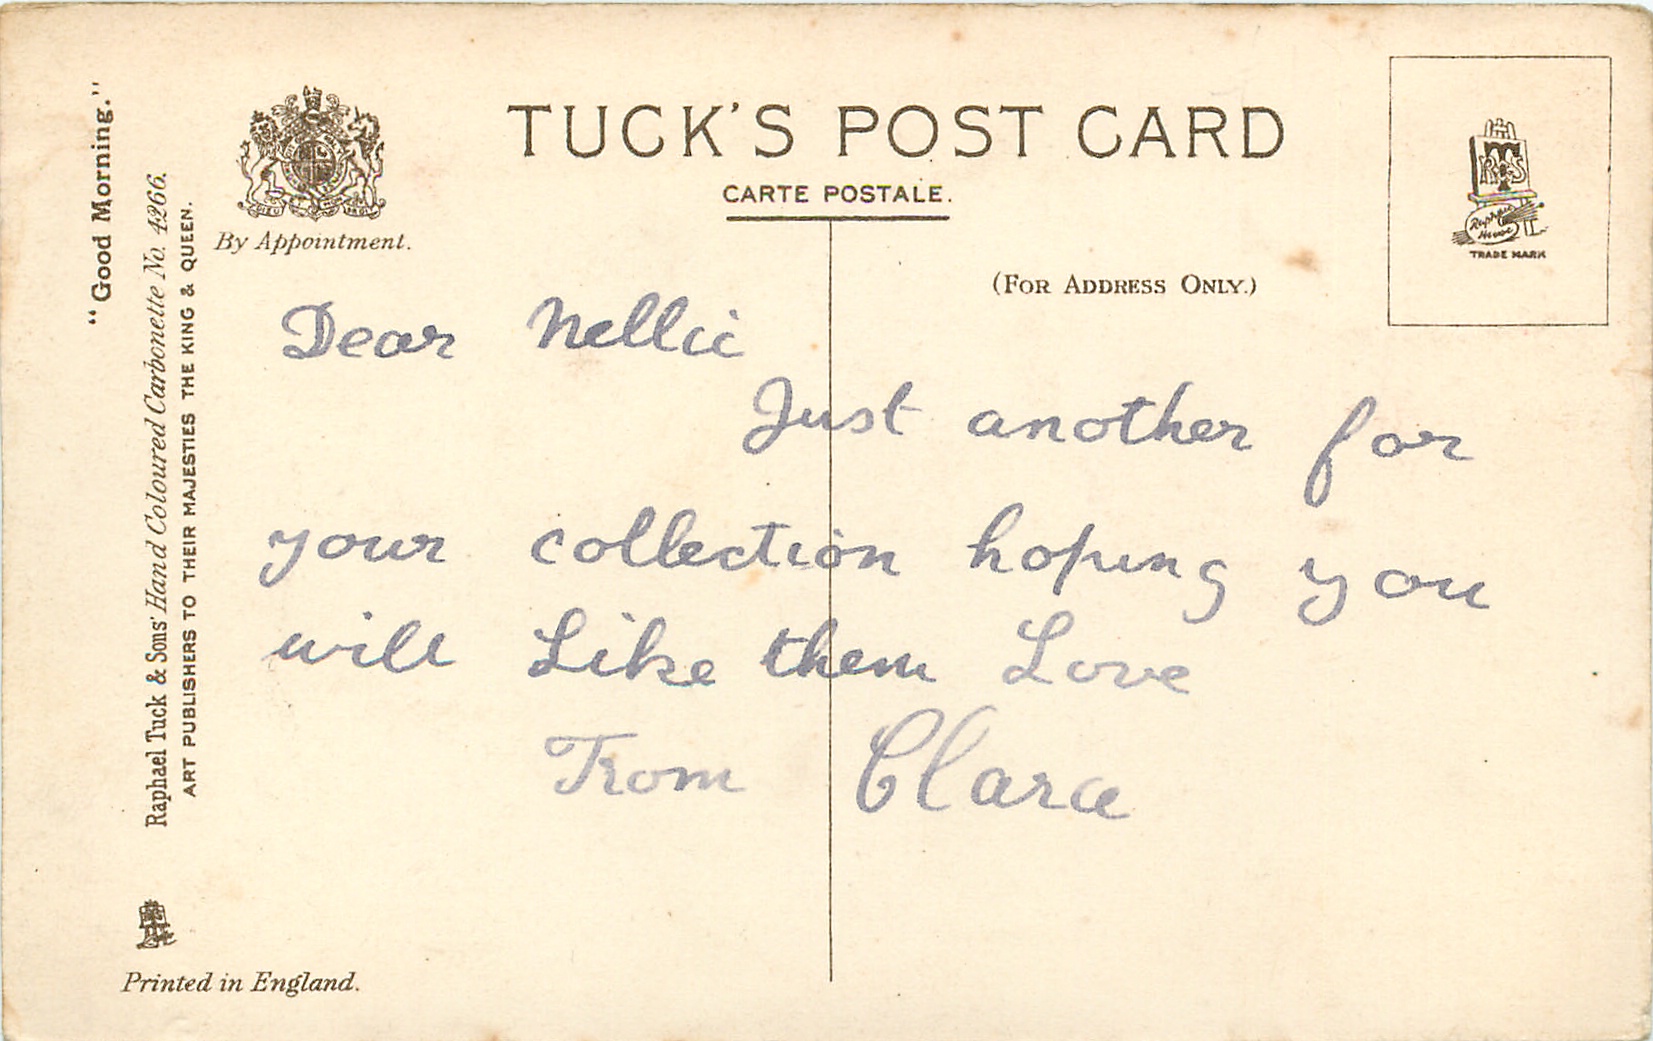 TUCK'S POST CARD
CARTE POSTALE.
By Appointment.
(FOR ADDRESS ONLY.)
RTS
Raphael House
TRADE MARK
"Good Morning."
Raphael Tuck & Sons' Hand Coloured Carbonette No. 4266.
ART PUBLISHERS TO THEIR MAJESTIES THE KING & QUEEN.
Dear Nellie
Just another for
your collection hoping you
will Like them Love
From Clara
Printed in England.